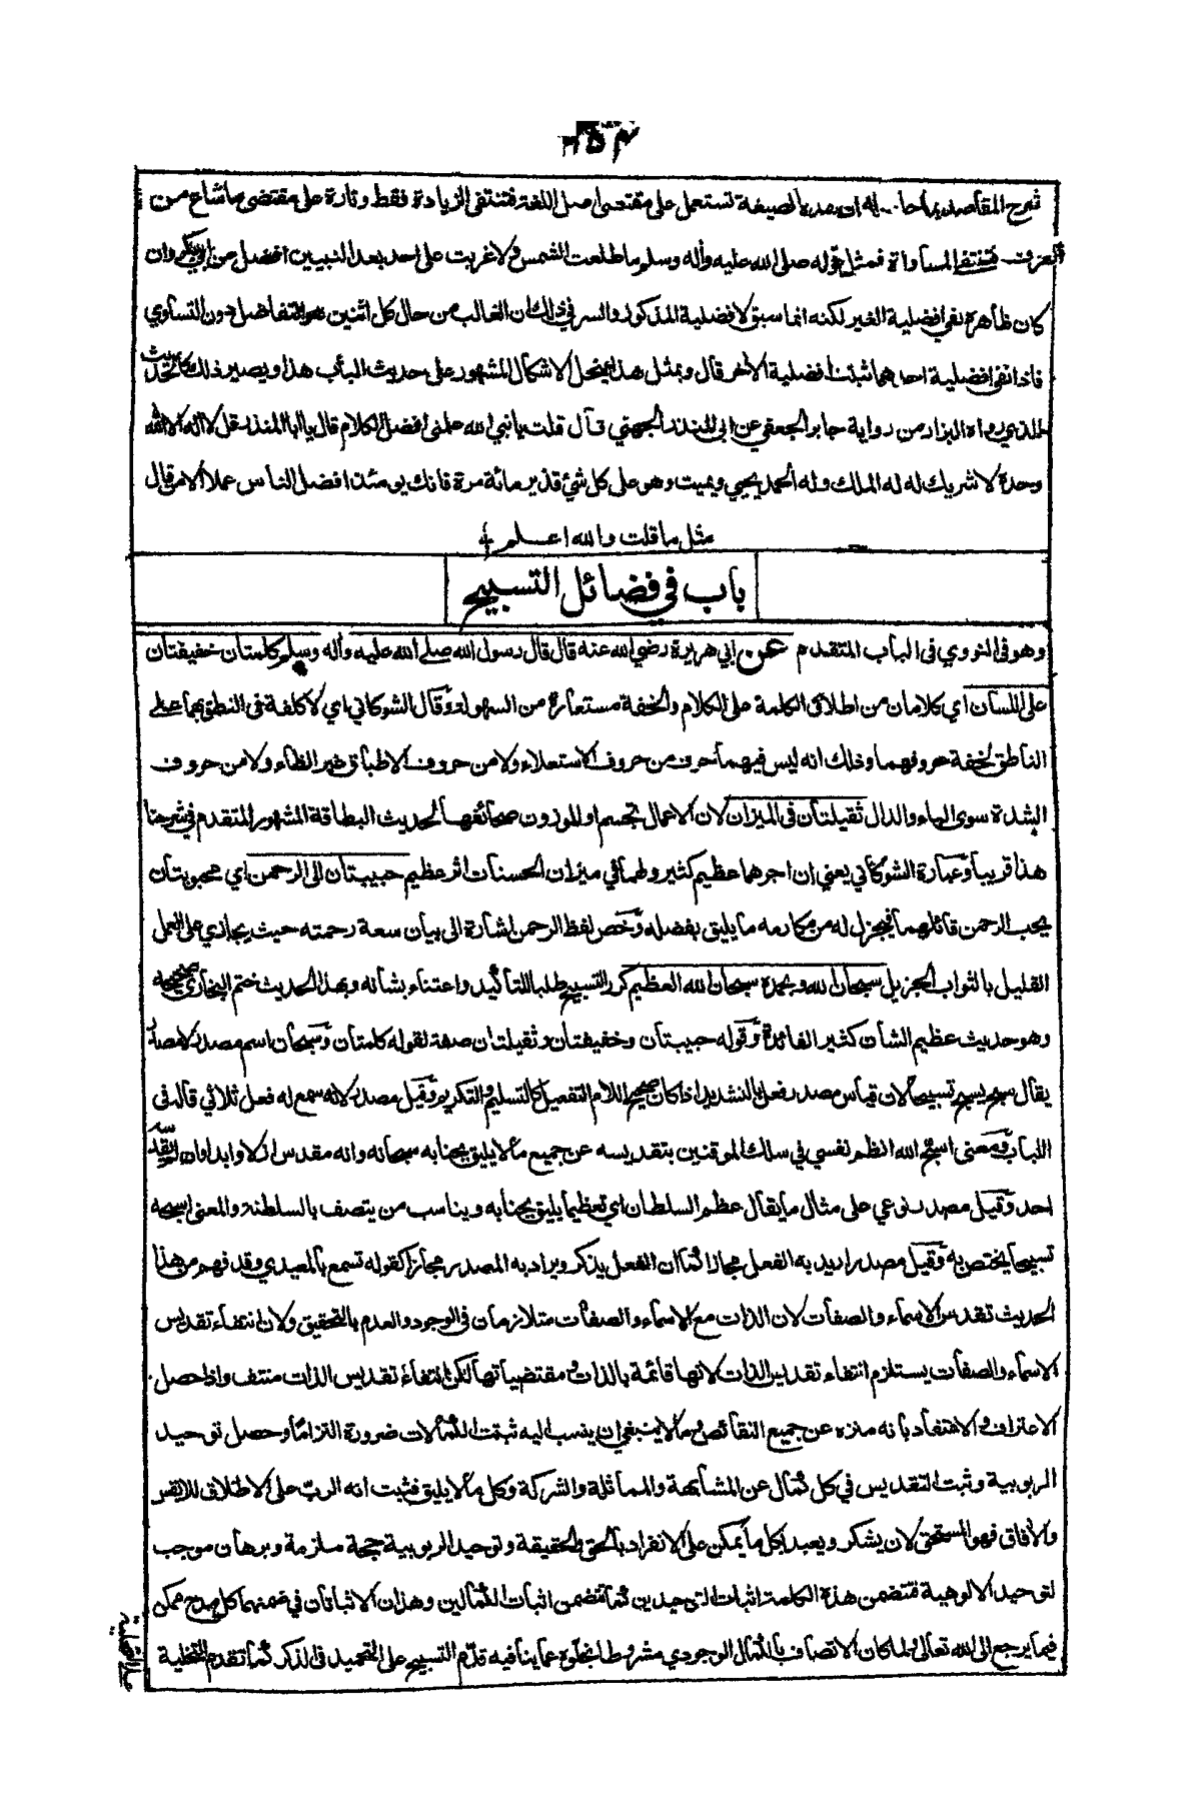 شرح المقاصد بما حا اله ان هذه الصيغة تستعمل على مقتضى اصل اللغة فتنتفى الزيادة فقط وتارة على مقتضى ما شاع من
العرف فتنتفى المساواة فمثل قوله صلى الله عليه وأله وسلم ما طلعت الشمس ولا غربت على احد بعد النبيين افضل من ابى بكر وان
كان ظاهره نفى افضلية الغير لكنه انما سبق لافضلية المذكور والسر فى ذلك ان الغالب من حال كل اثنين هو التفاضل دون التساوي
فاذا نفى افضلية احدهما ثبتت افضلية الأخر قال وبمثل هذا ينحل الاشكال المشهور على حديث الباب هذا ويصير ذلك كالحديث
الذي رواه البزار من رواية جابر الجعفي عن ابى المنذر الجهني قال قلت يا نبي الله علمنى افضل الكلام قال يا ابا المنذر قل لا اله الا الله
وحده لا شريك له له الملك وله الحمد يحيي ويميت وهو على كل شئ قدير مائة مرة فانك يومئذ افضل الناس عملا الا من قال
مثل ما قلت والله اعلم
باب فى فضائل التسبيح
وهو فى النووي فى الباب المتقدم عن ابي هريرة رضي الله عنه قال قال رسول الله صلى الله عليه وأله وسلم كلمتان خفيفتان
على اللسان اي كلامان من اطلاق الكلمة على الكلام والخفة مستعارة من السهولة وقال الشوكاني اي لا كلفة فى النطق بهما على
الناطق لخفة حروفهما وذلك انه ليس فيهما حرف من حروف الاستعلاء ولا من حروف الاطباق غير الظاء ولا من حروف
الشدة سوى الباء والدال ثقيلتان فى الميزان لان الاعمال تجسم او الموزون صحائفها لحديث البطاقة المشهور المتقدم في شرحنا
هذا قريبا وعبارة الشوكاني يعني ان اجرهما عظيم كثير ولهما فى ميزان الحسنات اثر عظيم حبيبتان الى الرحمن اي محبوبتان
يحب الرحمن قائلهما فيجزل له من مكارمه ما يليق بفضله وخص لفظ الرحمن اشارة الى بيان سعة رحمته حيث يجازي على العمل
القليل بالثواب الجزيل سبحان الله وبحمده سبحان الله العظيم كرر التسبيح طلبا للتأكيد واعتناء بشانه وبهذا الحديث ختم البخاري صحيحه
وهو حديث عظيم الشان كثير الفائدة وقوله حبيبتان وخفيفتان وثقيلتان صفة لقوله كلمتان وسبحان اسم مصدر لا مصدر
يقال سبح يسبح تسبيحا لان قياس مصدر فعل بالتشديد اذا كان صحيح اللام التفعيل كالتسليم والتكريم وقيل مصدر لانه سمع له فعل ثلاثي قاله فى
اللباب ومعنى اسبح الله انظم نفسي في سلك الموقنين بتقديسه عن جميع ما لا يليق بجنابه سبحانه وانه مقدس ازلا وابدا وان لم يقدسه
احد وقيل مصدر نوعي على مثال ما يقال عظم السلطان اي تعظيما يليق بجنابه ويناسب من يتصف بالسلطنة والمعنى اسبحه
تسبيحا يختص به وقيل مصدر اريد به الفعل مجازا كما ان الفعل يذكر ويراد به المصدر مجازا كقوله تسمع بالمعيدي وقد فهم من هذا
الحديث تقديس الاسماء والصفات لان الذات مع الاسماء والصفات متلازمان فى الوجود والعدم بالتحقيق ولان انتفاء تقديس
الاسماء والصفات يستلزم انتفاء تقديس الذات لانها قائمة بالذات ومقتضياتها لكن انتفاء تقديس الذات منتف واذا حصل
الاعتراف والاعتقاد بانه منزه عن جميع النقائص وما لا ينبغي ان ينسب اليه ثبتت الكمالات ضرورة التزاما وحصل توحيد
الربوبية وثبت التقديس في كل كمال عن المشابهة والمماثلة والشركة وكل ما لا يليق فثبت انه الرب على الاطلاق للانفس
والأفاق فهو المستحق لان يشكر ويعبد بكل ما يمكن على الانفراد بالحق والحقيقة وتوحيد الربوبية حجة ملزمة وبرهان موجب
لتوحيد الالوهية فتضمن هذه الكلمة اثبات التوحيدين كما تضمن اثبات الكمالين وهذان الاثباتان في ضمنهما كل مدح ممكن
فيما يرجع الى الله تعالى ولما كان الاتصاف بالكمال الوجودي مشروطا بخلوه عما ينافيه قدم التسبيح على التحميد فى الذكر كما تقدم التخلية
على التحلية